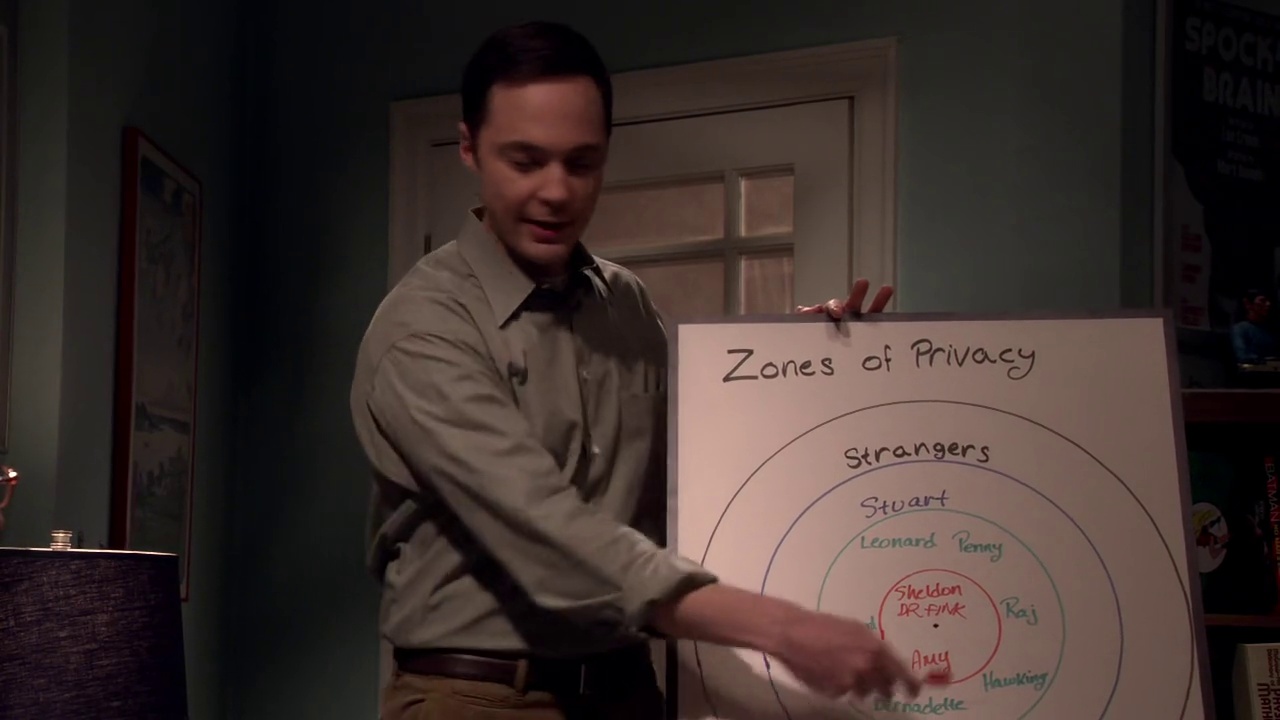 SPOCK'S
BRAIN
Zones of Privacy
Strangers
Stuart
Leonard Penny
Sheldon
DR. FINK
Raj
Amy
Hawking
Bernadette
BATMAN